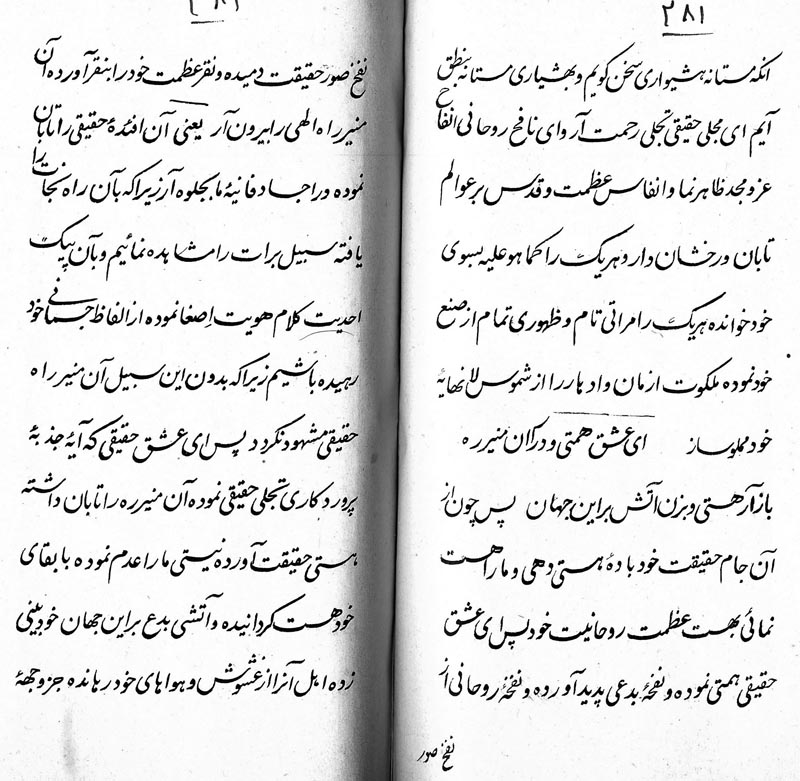 ۲۸۱
انکه مستانه هشیواری سخن کویم و بهشیاری مستانه بنطق
آیم ای مجلی حقیقی تجلی رحمت آر و ای نافخ روحانی انفاخ
عز و مجد ظاهر نما و انفاس عظمت و قدس بر عوالم
تابان و رخشان دار و هریک را کما هو علیه بسوی
خود خوانده هریک را مراتی تام و ظهوری تمام از صنع
خود نموده ملکوت ازمان و ادهار را از شموس لانهایه
خود مملو ساز ای عشق همتی و دران منیر ره
باز آر هستی و بزن آتش بر این جهان پس چون از
آن جام حقیقت خود بادهٔ هستی دهی و ما را هست
نمائی بهست عظمت روحانیت خود پس ای عشق
حقیقی همتی نموده و نفخهٔ بدعی پدید آورده و نفخهٔ روحانی از
نفخ صور
نفخ صور حقیقت دمیده و نقر عظمت خود را بنقر آورده آن
منیر راه الهی را بیرون آر یعنی آن افئدهٔ حقیقی را تابان
نموده در اجساد فانیهٔ ما بجلوه آر زیرا که بآن راه نجات را
یافته سبیل برات را مشاهده نمائیم و بآن پیک
احدیت کلام هویت اصغا نموده از الفاظ جسمانی خود
رهیده باشیم زیرا که بدون این سبیل آن منیر راه
حقیقی مشهود نکردد پس ای عشق حقیقی که آیهٔ جذبهٔ
پروردکاری تجلی حقیقی نموده آن منیر ره را تابان داشته
هستی حقیقت آورده نیستی ما را عدم نموده با بقای
خود هست کردانیده و آتشی بدع بر این جهان خودبینی
زده اهل آنرا از غشوش و هواهای خود رهانده جز وجههٔ